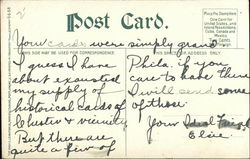 Post Card.
Place Postage Stamp Here
One Cent for United States, and Island Possessions, Cuba, Canada and Mexico.
THIS SIDE MAY BE USED FOR CORRESPONDENCE.
Your cards were simply grand
I guess I have
about exausted
my supply of
historical cards of
Chester & vicinity
But there are
quite a few of
Phila. if you
care to have them
I will send some
of those.
Your
Elsie.